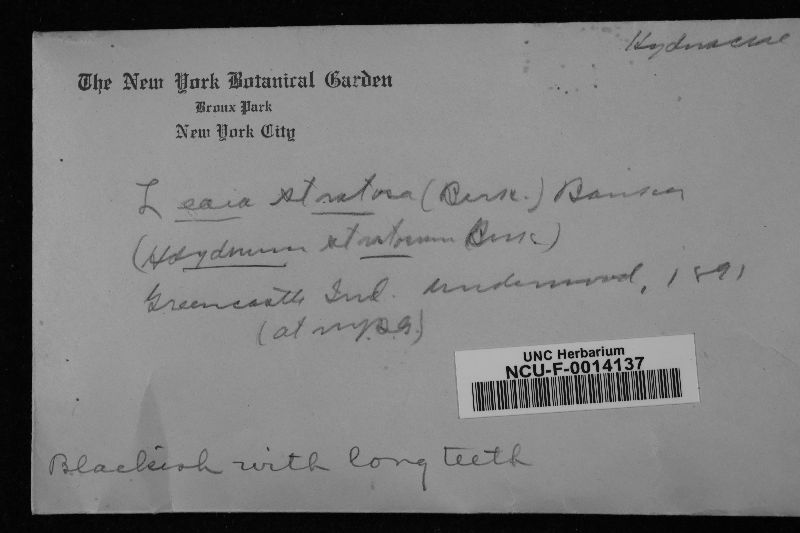 Hydnaceae
The New York Botanical Garden
Bronx Park
New York City
Leaia stratosa (Berk.) Banker
(Hydnum stratosum Berk.)
Greencastle Ind. Underwood, 1891
(at N.Y.B.G.)
UNC Herbarium
NCU-F-0014137
Blackish with long teeth